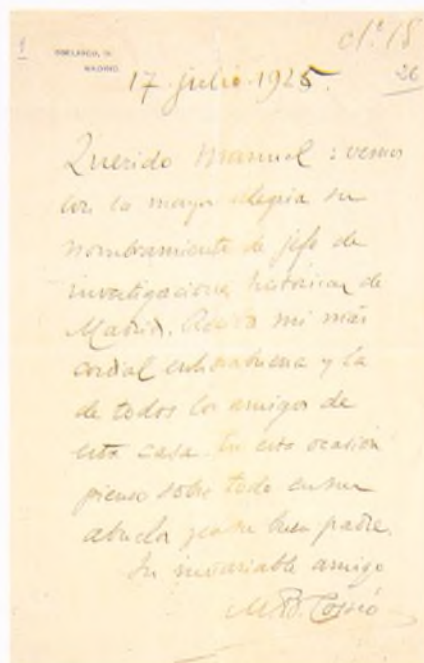 1
OBELISCO, 14
MADRID
cª 15
26
17 julio 1925.
Querido Manuel: vemos
con la mayor alegria su
nombramiento de jefe de
investigaciones historicas de
Madrid. Reciba mi más
cordial enhorabuena y la
de todos los amigos de
esta casa. En esta ocasión
pienso sobre todo en su
abuelo y en su buen padre.
Su invariable amigo
M. B. Cossío